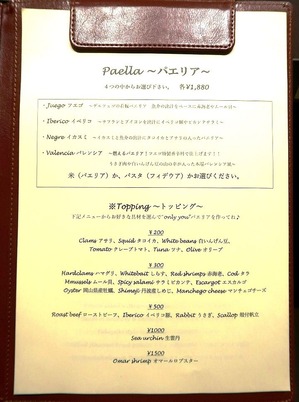 Paella ～パエリア～
4つの中からお選び下さい。 各¥1,880
・Juego フエゴ
・Iberico イベリコ
・Negro イカスミ ～イカスミと魚介の出汁にタコイカとアサリの入ったパエリア～
・Valencia バレンシア
米（パエリア）か、パスタ（フィデウア）かお選びください。
※Topping ～トッピング～
下記メニューからお好きな具材を選んで"only you"パエリアを作ってね♪
¥200
Clams アサリ, Squid タコイカ, White beans 白いんげん豆,
Tomato クレープトマト, Tuna ツナ, Olive オリーブ
¥300
Hardclams ハマグリ, Whitebait しらす, Red shrimps 赤海老, Cod タラ
Mmussels ムール貝, Spicy salami サラミピカンテ, Escargot エスカルゴ
Oyster 岡山県産牡蠣, Shimeji 丹波産しめじ, Manchego cheese マンチェゴチーズ
¥500
Roast beef ローストビーフ, Iberico イベリコ豚, Rabbit うさぎ, Scallop 殻付帆立
¥1000
Sea urchin 生雲丹
¥1500
Omar shrimp オマールロブスター